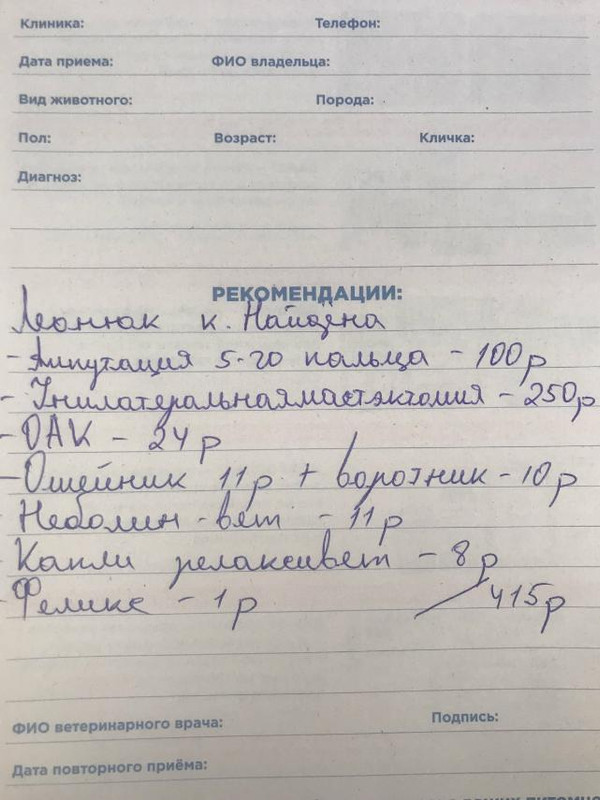 Клиника: Телефон:
Дата приема: ФИО владельца:
Вид животного: Порода:
Пол: Возраст: Кличка:
Диагноз:
РЕКОМЕНДАЦИИ:
к. Найдена
- Ампутация 5-го пальца - 100р
- Унилатеральная мастэктомия - 250р
- ОАК - 24р
- Ошейник 11р + воротник - 10р
- Неболин-вет - 11р
- Капли релаксивет - 8р
- Феликс - 1р 415р
ФИО ветеринарного врача: Подпись:
Дата повторного приёма: